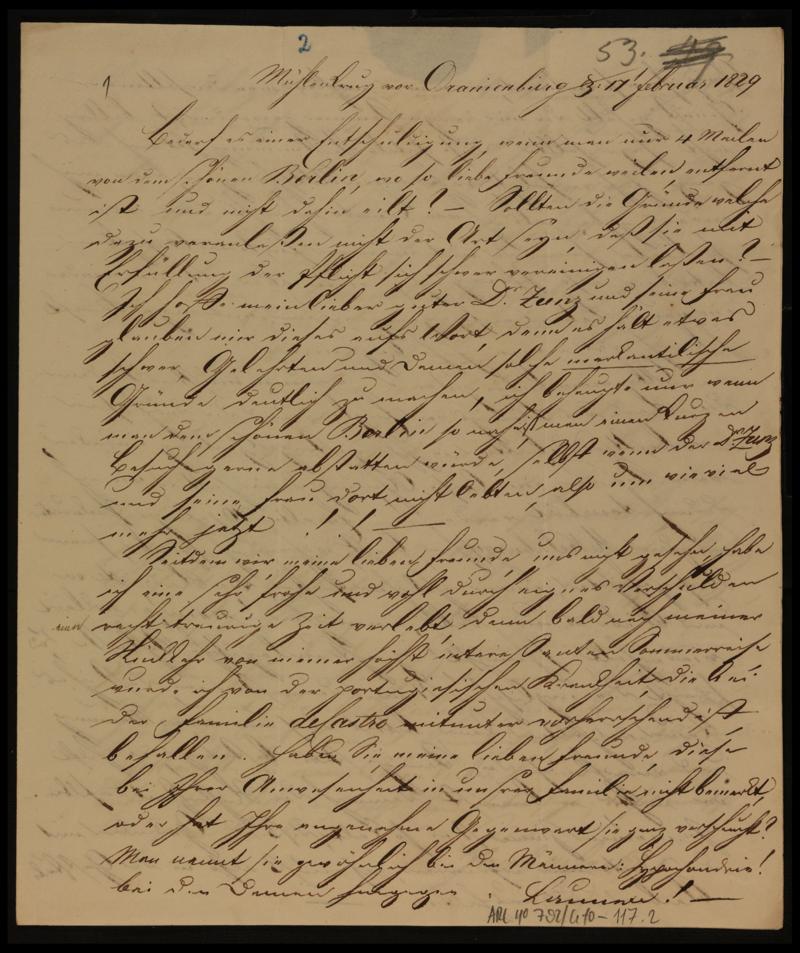 2
53. 49
1
Mühlenkrug vor Oranienburg d. 17 Februar 1829
Bedarf es einer Entschuldigung, wenn man nur 4 Meilen
von dem schönen Berlin, wo so liebe Freunde weilen entfernt
ist und nicht dahin eilt? — Sollten die Gründe welche
dazu veranlaßen nicht der Art seyn, daß sie mit
Erfüllung der Pflicht sich schwer vereinigen laßen? —
Ich hoffe mein lieber guter Dr. Zunz und seine Frau
glauben mir dieses aufs Wort, denn es hält etwas
schwer, Gelehrten und Damen solche merkantilische
Gründe deutlich zu machen, ich behaupte nur wenn
man dem schönen Berlin so nah ist man einen kurzen
Besuch gerne abstatten würde, selbst wenn der Dr. Zunz
und seine Frau dort nicht lebten, also um wie viel
mehr jetzt ! ! —
Seitdem wir, meine lieben Freunde, uns nicht gesehn, habe
ich eine sehr frohe und wohl durch eignes Verschulden
recht traurige Zeit verlebt, denn bald nach meiner
Rückkehr von meiner höchst interessanten Sommerreise
wurde ich von der portugiesischen Krankheit, die bei
der Familie deCastro mitunter vorherrschend ist,
befallen. Haben Sie meine lieben Freunde, diese
bei Ihrer Anwesenheit in unsrer Familie nicht bemerkt,
oder hat Ihre angenehme Gegenwart sie ganz verscheucht?
Man nennt sie gewöhnlich bei den Männern: Hypochondrie!
bei den Damen hingegen : Launen! —
ARC 4º 792/G10-117.2